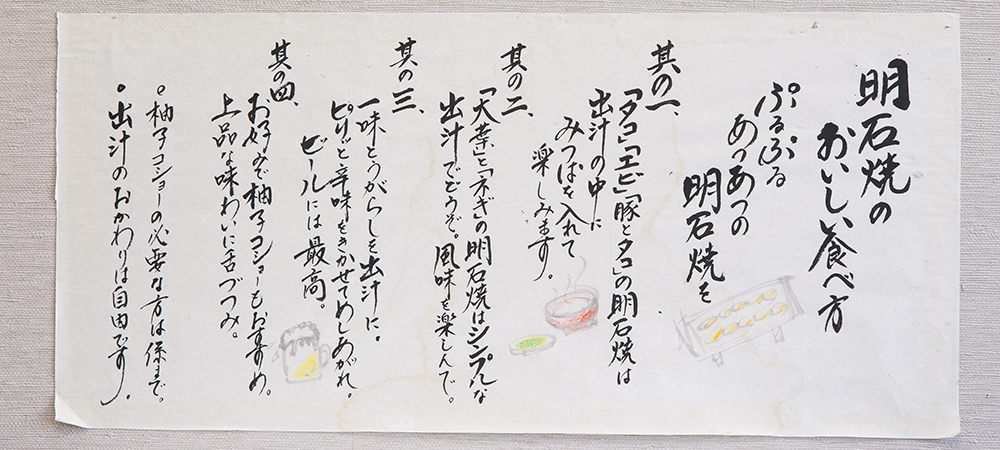 明石焼の
おいしい食べ方
ぷるぷる
あつあつの
明石焼を
其の一、
「タコ」「エビ」「豚とタコ」の明石焼は
出汁の中に
みつばを入れて
楽しみます。
其の二、
「大葉」と「ネギ」の明石焼はシンプルな
出汁でどうぞ。風味を楽しんで。
其の三、
一味とうがらしを出汁に。
ピリッと辛味をきかせてめしあがれ。
ビールには最高。
其の四、
お好みで柚子コショーもおすすめ。
上品な味わいに舌づつみ。
・柚子コショーの必要な方は係まで。
・出汁のおかわりは自由です。